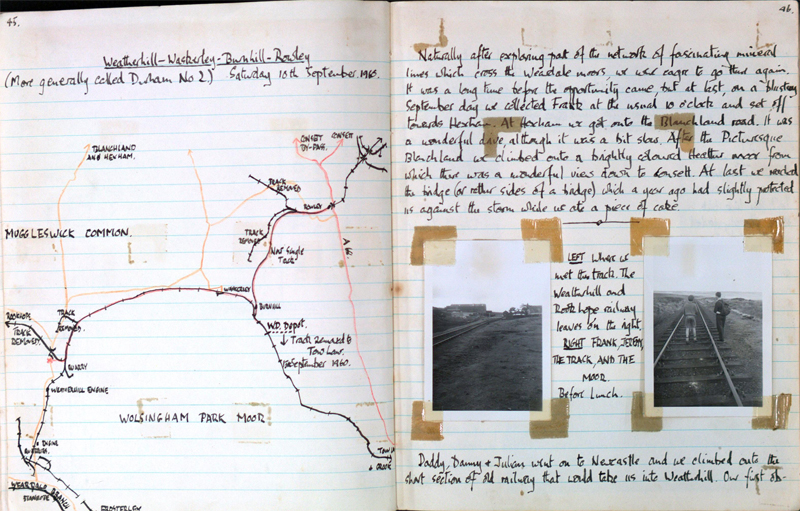 45.
Weatherhill-Waskerley-Burnhill-Rowley
(More generally called Durham No 2.) Saturday 10th September. 1960.
BLANCHLAND
AND HEXHAM.
CONSETT
BY-PASS.
CONSETT
TRACK
REMOVED
ROWLEY
TRACK
REMOVED
Now Single
Track
A 68
MUGGLESWICK COMMON.
WASKERLEY
BURNHILL
ROOKHOPE
TRACK
REMOVED.
TRACK
REMOVED.
W.D. Depot.
↓ Track Removed to
Tow Law.
September. 1960.
WEATHERHILL ENGINE
WOLSINGHAM PARK MOOR
TOW
& CROOK
WEARDALE BRANCH
STANHOPE
FROSTERLEY
46.
Naturally after exploring part of the network of fascinating mineral
lines which cross the Weardale moors, we were eager to go there again.
It was a long time before the opportunity came, but at last, on a blustery
September day we collected Frank at the usual 10 o'clock and set off
towards Hexham. At Hexham we got onto the Blanchland road. It was
a wonderful drive, although it was a bit slow. After the Picturesque
Blanchland we climbed onto a brightly coloured Heather moor from
which there was a wonderful view down to Consett. At last we reached
the bridge (or rather sides of a bridge) which a year ago had slightly protected
us against the storm while we ate a piece of cake.
LEFT Where we
met the track. The
Weatherhill and
Rookhope railway
leaves on the right.
RIGHT FRANK, JEREMY,
THE TRACK AND THE
MOOR.
Before Lunch.
Daddy, Danny & Julian went on to Newcastle and we climbed onto the
short section of old railway that would take us into Weatherhill. Our first ob-